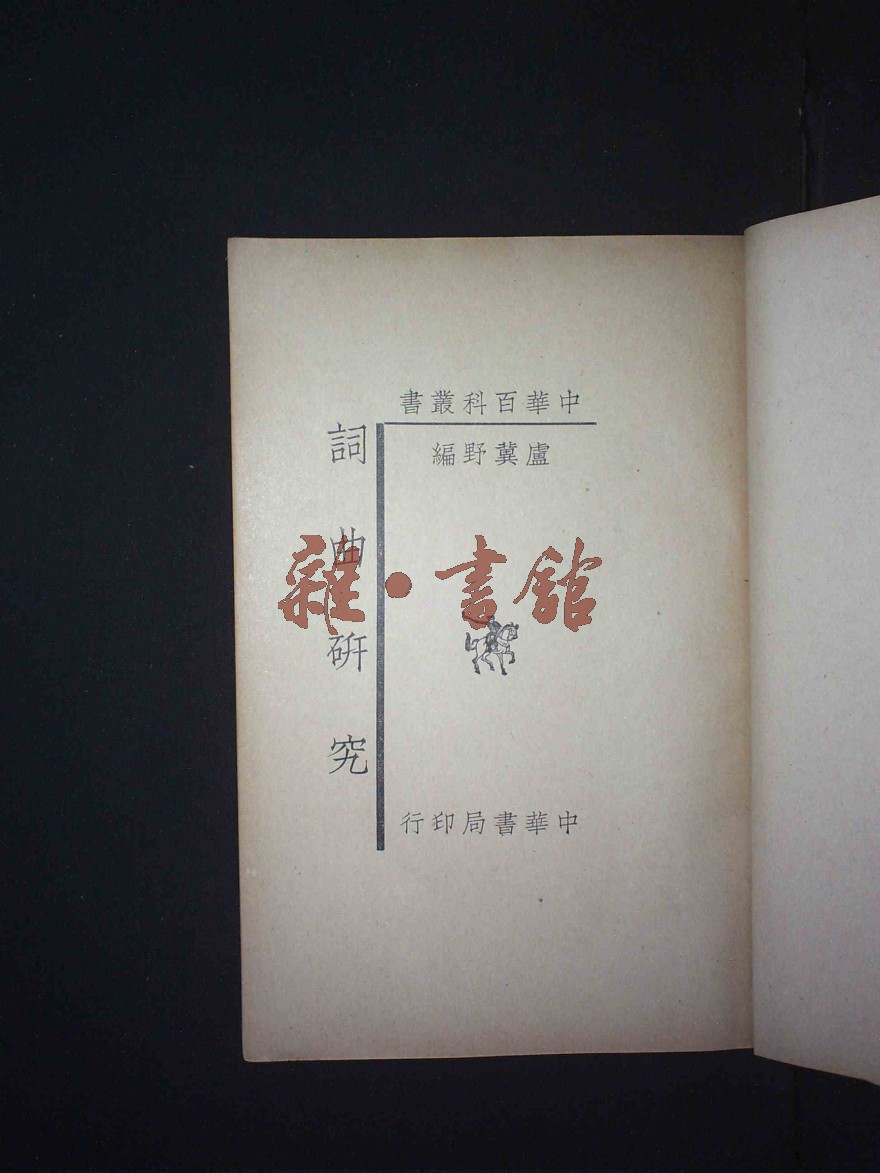 中華百科叢書
盧冀野編
詞曲研究
中華書局印行
雜·書館